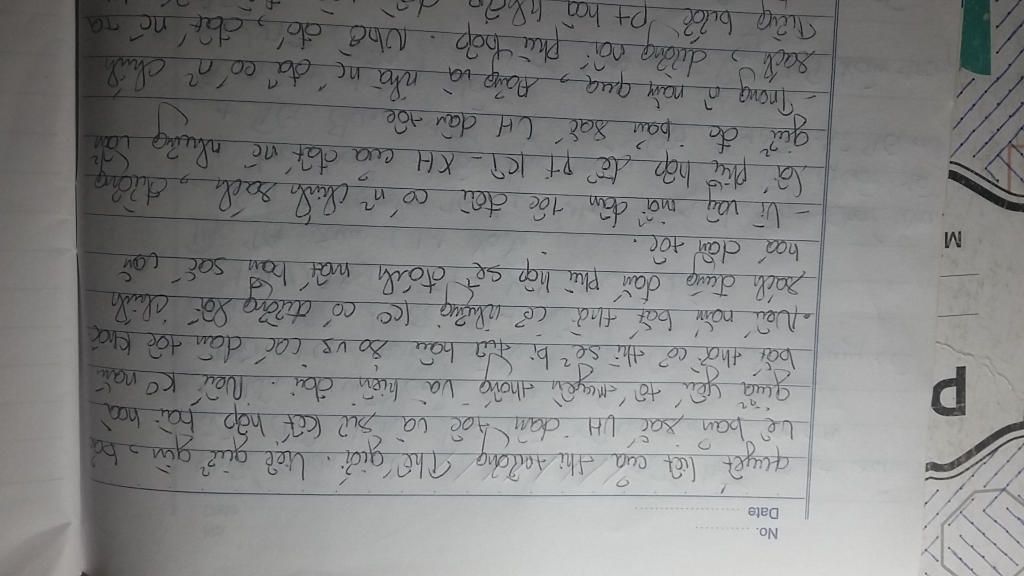 No. ............
Date ............
quyết liệt của thị trường Thế giới. Việc giữ gìn, bả
vệ bản sắc VH dân tộc và sự kết hợp hài hoà
giữa yếu tố truyền thống và hiện đại. Nếu k° nắm
bắt thời cơ thì sẽ bị tụt hậu so vs các dân tộc khác
Nếu nắm bắt thời cơ nhưng k° có đường lối chính
sách đúng đắn phù hợp sẽ đánh mất bản sắc văn
hoá dân tộc.
- Vì vậy mà dân tộc đều có n² chính sách, đường
lối phù hợp để pt KT - XH của đất nc nhưng vẫn
giữ đc bản sắc VH dân tộc
- Trong n² năm qua, Đảng và nhà nc đã có n² chính
sách, đường lối phù hợp. Nhờ đó, đất nc ta
từng bước pt hoà nhập
M
P